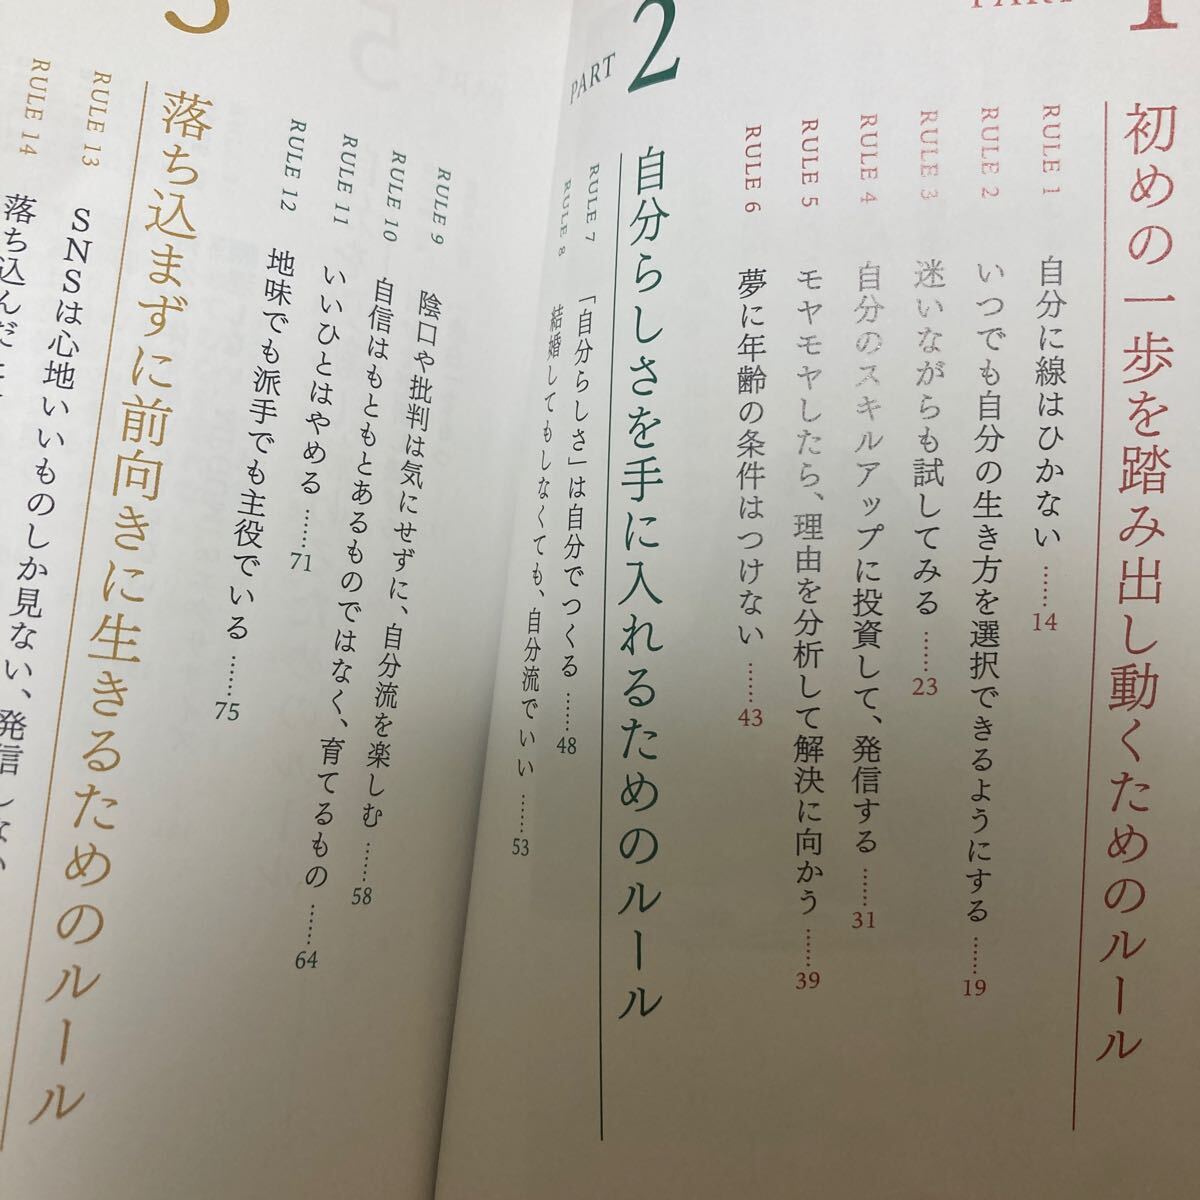 PART 1
初めの一歩を踏み出し動くためのルール
RULE 1 自分に線はひかない ……14
RULE 2 いつでも自分の生き方を選択できるようにする ……19
RULE 3 迷いながらも試してみる ……23
RULE 4 自分のスキルアップに投資して、発信する ……31
RULE 5 モヤモヤしたら、理由を分析して解決に向かう ……39
RULE 6 夢に年齢の条件はつけない ……43
PART 2
自分らしさを手に入れるためのルール
RULE 7 「自分らしさ」は自分でつくる ……48
RULE 8 結婚してもしなくても、自分流でいい ……53
RULE 9 陰口や批判は気にせずに、自分流を楽しむ ……58
RULE 10 自信はもともとあるものではなく、育てるもの ……64
RULE 11 いいひとはやめる ……71
RULE 12 地味でも派手でも主役でいる ……75
3
落ち込まずに前向きに生きるためのルール
RULE 13 SNSは心地いいものしか見ない、発信しない
RULE 14 落ち込んだ